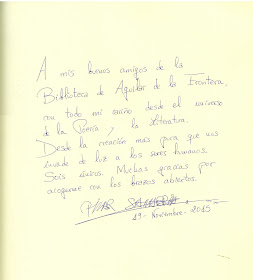 A mis buenos amigos de la
Biblioteca de Aguilar de la Frontera,
con todo mi cariño desde el universo
de la Poesía y la Literatura.
Desde la creación más pura que nos
invade de luz a los seres humanos.
Sois únicos. Muchas gracias por
acogerme con los brazos abiertos.
PILAR
19- Noviembre- 2015